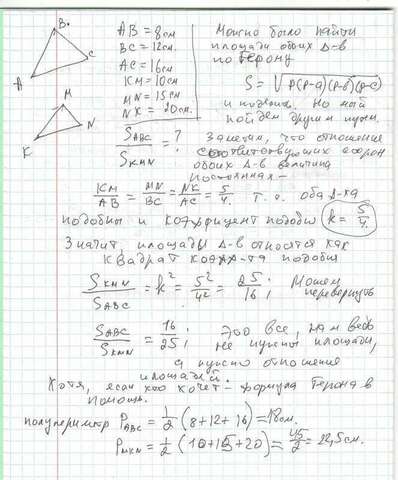 B
C
A
M
N
K
AB = 8см
BC = 12см.
AC = 16см
KM = 10см
MN = 15см
NK = 20см.
S ABC / S KMN = ?
Можно было найти
площади обоих Δ-в
по Герону
S = √P(P-a)(P-b)(P-c)
и Но мы
пойдем другим путем.
Заметим, что отношение
соответствующих сторон
обоих Δ-в величина
постоянная -
KM/AB = MN/BC = NK/AC = 5/4. т.о. оба Δ-ка
подобны и коэффициент подобия k = 5/4.
Значит, площади Δ-в относятся как
квадрат коэфф-та подобия
S KMN / S ABC = k² = 5²/4² = 25/16; Можем
перевернуть
S ABC / S KMN = 16/25; Это все, нам ведь
не нужны площади,
а нужно отношение
площадей.
Хотя, если кто хочет - формула Герона в
помощь.
полупериметр P ABC = 1/2 (8+12+16) = 18см.
P MKN = 1/2 (10+15+20) = 45/2 = 22,5см.